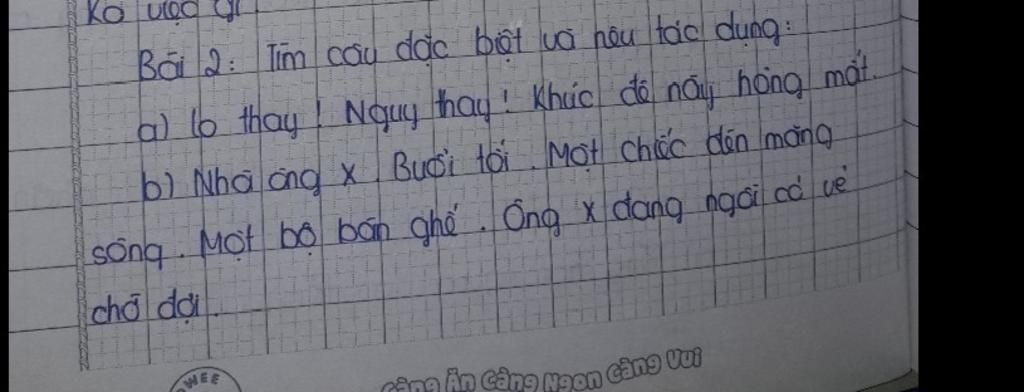 Ko được gì
Bài 2: Tìm câu đặc biệt và nêu tác dụng:
a) lo thay! Nguy thay! Khúc đê này hỏng mất.
b) Nhà ông x. Buổi tối. Một chiếc đèn măng
sông. Một bộ bàn ghế. Ông x đang ngồi có vẻ
chờ đợi.
WEE
Càng Ăn Càng Ngon Càng Vui